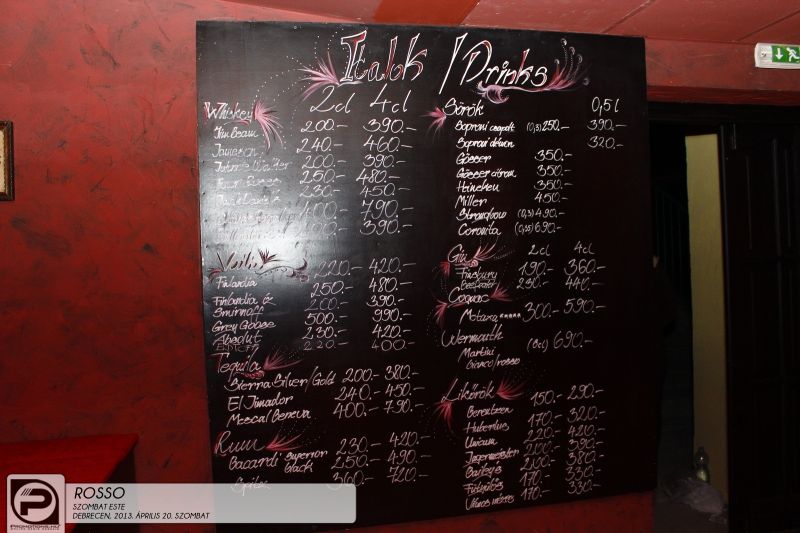 Italok / Drinks
Whiskey 2cl 4cl
Jim Beam 200.- 390.-
Jameson 240.- 460.-
200.- 390.-
250.- 480.-
230.- 450.-
400.- 790.-
200.- 390.-
Finlandia 220.- 420.-
Finlandia 250.- 480.-
Smirnoff 200.- 390.-
Grey Goose 500.- 990.-
Absolut 230.- 420.-
220.- 400.-
Tequila
Sierra Silver/Gold 200.- 380.-
El Jimador 240.- 450.-
Mezcal Beneva 400.- 790.-
Rum
Bacardi Superior 230.- 420.-
black 250.- 490.-
360.- 720.-
Sörök 0,5l
Soproni csapolt (0,3) 250.- 390.-
Soproni démon 320.-
Gösser 350.-
Gösser citrom 350.-
Heineken 350.-
Miller 450.-
Strongbow (0,3) 490.-
Coronita (0,35) 690.-
Gin 2cl 4cl
Finsbury 190.- 360.-
Beefeater 230.- 440.-
Cognac
Metaxa ***** 300.- 590.-
Wermouth
Martini (8cl) 690.-
bianco/rosso
Likőrök
Berentzen 150.- 290.-
Hubertus 170.- 320.-
Unicum 220.- 420.-
Jagermeister 200.- 390.-
Baileys 200.- 380.-
Fütyülős 170.- 330.-
Vilmos mézes 170.- 330.-
P
PROMOTIONS.HU
ROSSO
SZOMBAT ESTE
DEBRECEN, 2013. ÁPRILIS 20. SZOMBAT